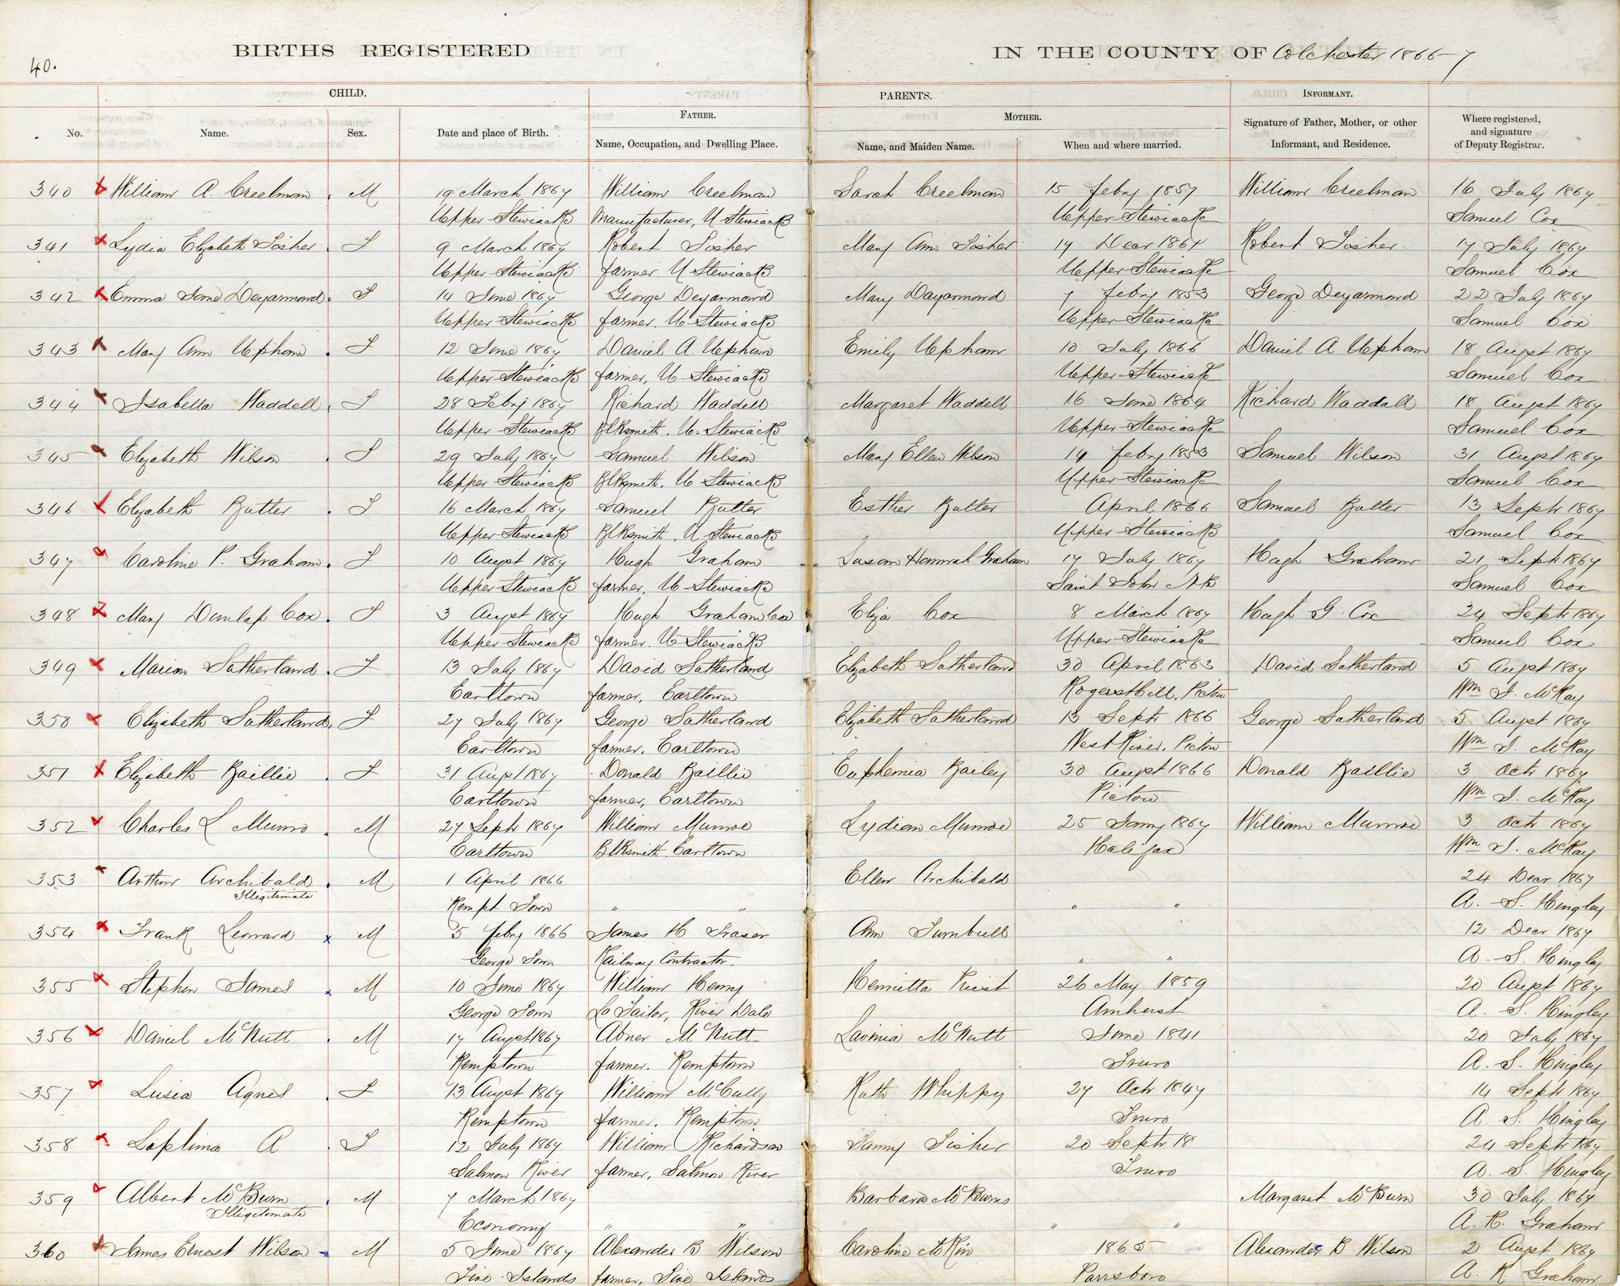 40.
BIRTHS REGISTERED
IN THE COUNTY OF Colchester 1866-7
CHILD.
PARENTS.
INFORMANT.
FATHER.
MOTHER.
Signature of Father, Mother, or other
Informant, and Residence.
Where registered,
and signature
of Deputy Registrar.
No. Name. Sex. Date and place of Birth. Name, Occupation, and Dwelling Place. Name, and Maiden Name. When and where married.
340 William A. Creelman M 19 March 1867 William Creelman Sarah Creelman 15 feby 1857 William Creelman 16 July 1867
Upper Stewiacke Manufacturer, U Stewiacke Upper Stewiacke Samuel Cox
341 Lydia Elizabeth Fisher F 9 March 1867 Robert Fisher Mary Ann Fisher 17 Decr 1864 Robert Fisher 17 July 1867
Upper Stewiacke farmer U Stewiacke Upper Stewiacke Samuel Cox
342 Emma Jane Deyarmond F 14 June 1867 George Deyarmond Mary Dayarmond 7 feby 1853 George Deyarmond 22 July 1867
Upper Stewiacke farmer. U Stewiacke Upper Stewiacke Samuel Cox
343 Mary Ann Upham F 12 June 1867 Daniel A Upham Emily Upham 10 July 1866 Daniel A Upham 18 Augst 1867
Upper Stewiacke farmer, U Stewiacke Upper Stewiacke Samuel Cox
344 Isabella Waddell F 28 Feby 1867 Richard Waddell Margaret Waddell 16 June 1864 Richard Waddall 18 Augst 1867
Upper Stewiacke Blksmith. U. Stewiacke Upper Stewiacke Samuel Cox
345 Elizabeth Wilson F 29 July 1867 Samuel Wilson Mary Ellen Wilson 14 feby 1853 Samuel Wilson 31 Augst 1867
Upper Stewiacke Blksmith. U Stewiacke Upper Stewiacke Samuel Cox
346 Elizabeth Rutter F 16 March 1867 Samuel Rutter Esther Rutter April 1866 Samuel Rutter 13 Septr 1867
Upper Stewiacke Blksmith. U Stewiacke Upper Stewiacke Samuel Cox
347 Caroline P. Graham F 10 Augst 1867 Hugh Graham Susan Hannah Graham 17 July 1867 Hugh Graham 21 Septr 1867
Upper Stewiacke farmer, U Stewiacke Saint John NB Samuel Cox
348 Mary Dunlap Cox F 3 Augst 1867 Hugh Graham Cox Eliza Cox 8 March 1867 Hugh G Cox 24 Septr 1867
Upper Stewiacke farmer. U Stewiacke Upper Stewiacke Samuel Cox
349 Marion Sutherland F 13 July 1867 David Sutherland Elizabeth Sutherland 30 April 1863 David Sutherland 5 Augst 1867
Earltown farmer, Earltown Rogers Hill, Pictou Wm J. McKay
350 Elizabeth Sutherland F 27 July 1867 George Sutherland Elizabeth Sutherland 13 Septr 1866 George Sutherland 5 Augst 1867
Earltown farmer. Earltown West River, Pictou Wm J. McKay
351 Elizabeth Baillie F 31 Augst 1867 Donald Baillie Euphemia Bailey 30 Augst 1866 Donald Baillie 3 Octr 1867
Earltown farmer, Earltown Pictou Wm J. McKay
352 Charles L Munro M 27 Septr 1867 William Munroe Lydian Munroe 25 Jany 1867 William Munroe 3 Octr 1867
Earltown Blksmith Earltown Halifax Wm J. McKay
353 Arthur Archibald M 1 April 1866 Ellen Archibald 24 Decr 1867
Illegitimate Kempt Town " " " " A. S. Kingley
354 Frank Leonard M 5 feby 1866 James H Fraser Ann Turnbull 12 Decr 1867
George Town Railway Contractor. " " A. S. Kingley
355 Stephen James M 10 June 1867 William Henry Henrietta Priest 26 May 1859 20 Augst 1867
George Town La Tailor, River Dale Amherst A. S. Kingley
356 Daniel McNutt M 17 Augst 1867 Abner McNutt Lavinia McNutt June 1841 20 July 1867
Kemptown farmer. Kemptown Truro A. S. Kingley
357 Lusia Agnes F 13 Augst 1867 William McCully Ruth Whippy 27 Octr 1847 14 Septr 1867
Kemptown farmer. Kemptown Truro A. S. Kingley
358 Soplina A F 12 July 1867 William Richardson Fanny Fisher 20 Septr 18 24 Septr 1867
Salmon River farmer, Salmon River Truro A. S. Kingley
359 Albert McBurn M 7 March 1867 Barbara McBurns Margaret McBurn 30 July 1867
Illegitimate Economy " " " " A. R. Graham
360 James Ernest Wilson M 5 June 1867 Alexander B Wilson Caroline McKim 1865 Alexander B Wilson 2 Augst 1867
Five Islands farmer, Five Islands Parrsboro A. R Graham